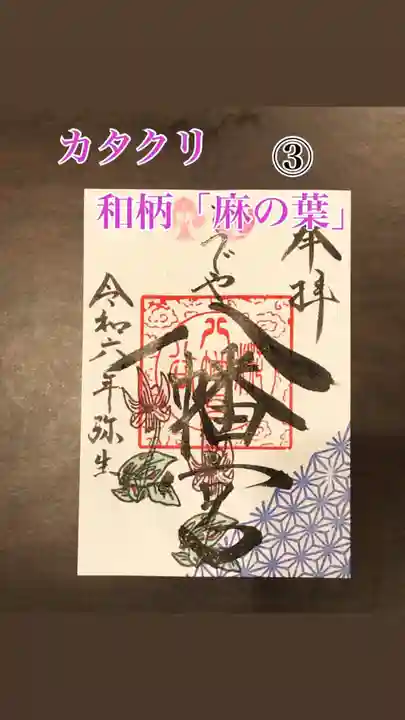 カタクリ
③
和柄「麻の葉」
奉拝
八幡宮
令和六年弥生